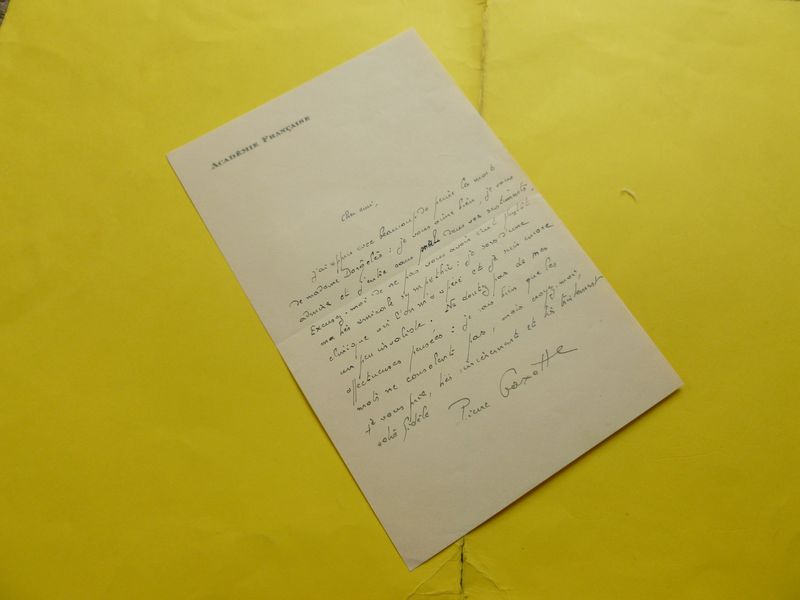 ACADÉMIE FRANÇAISE
Cher ami,
J'ai appris avec beaucoup de peine la mort
de madame Dorgelès : je vous aime bien, je vous
admire et j'entre sans dans vos sentiments.
Excusez-moi de ne pas vous avoir écrit plutôt
ma très amicale sympathie : je sors d'une
clinique où l'on m'a opéré et je suis encore
un peu invalide. Ne doutez pas de mes
affectueuses pensées : je sais bien que les
mots ne consolent pas, mais croyez-moi,
je vous prie, très sincèrement et très tristement
votre fidèle Pierre Gaxotte